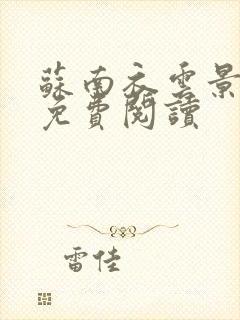 蘇南衣雲景
免費閱讀
雷佳